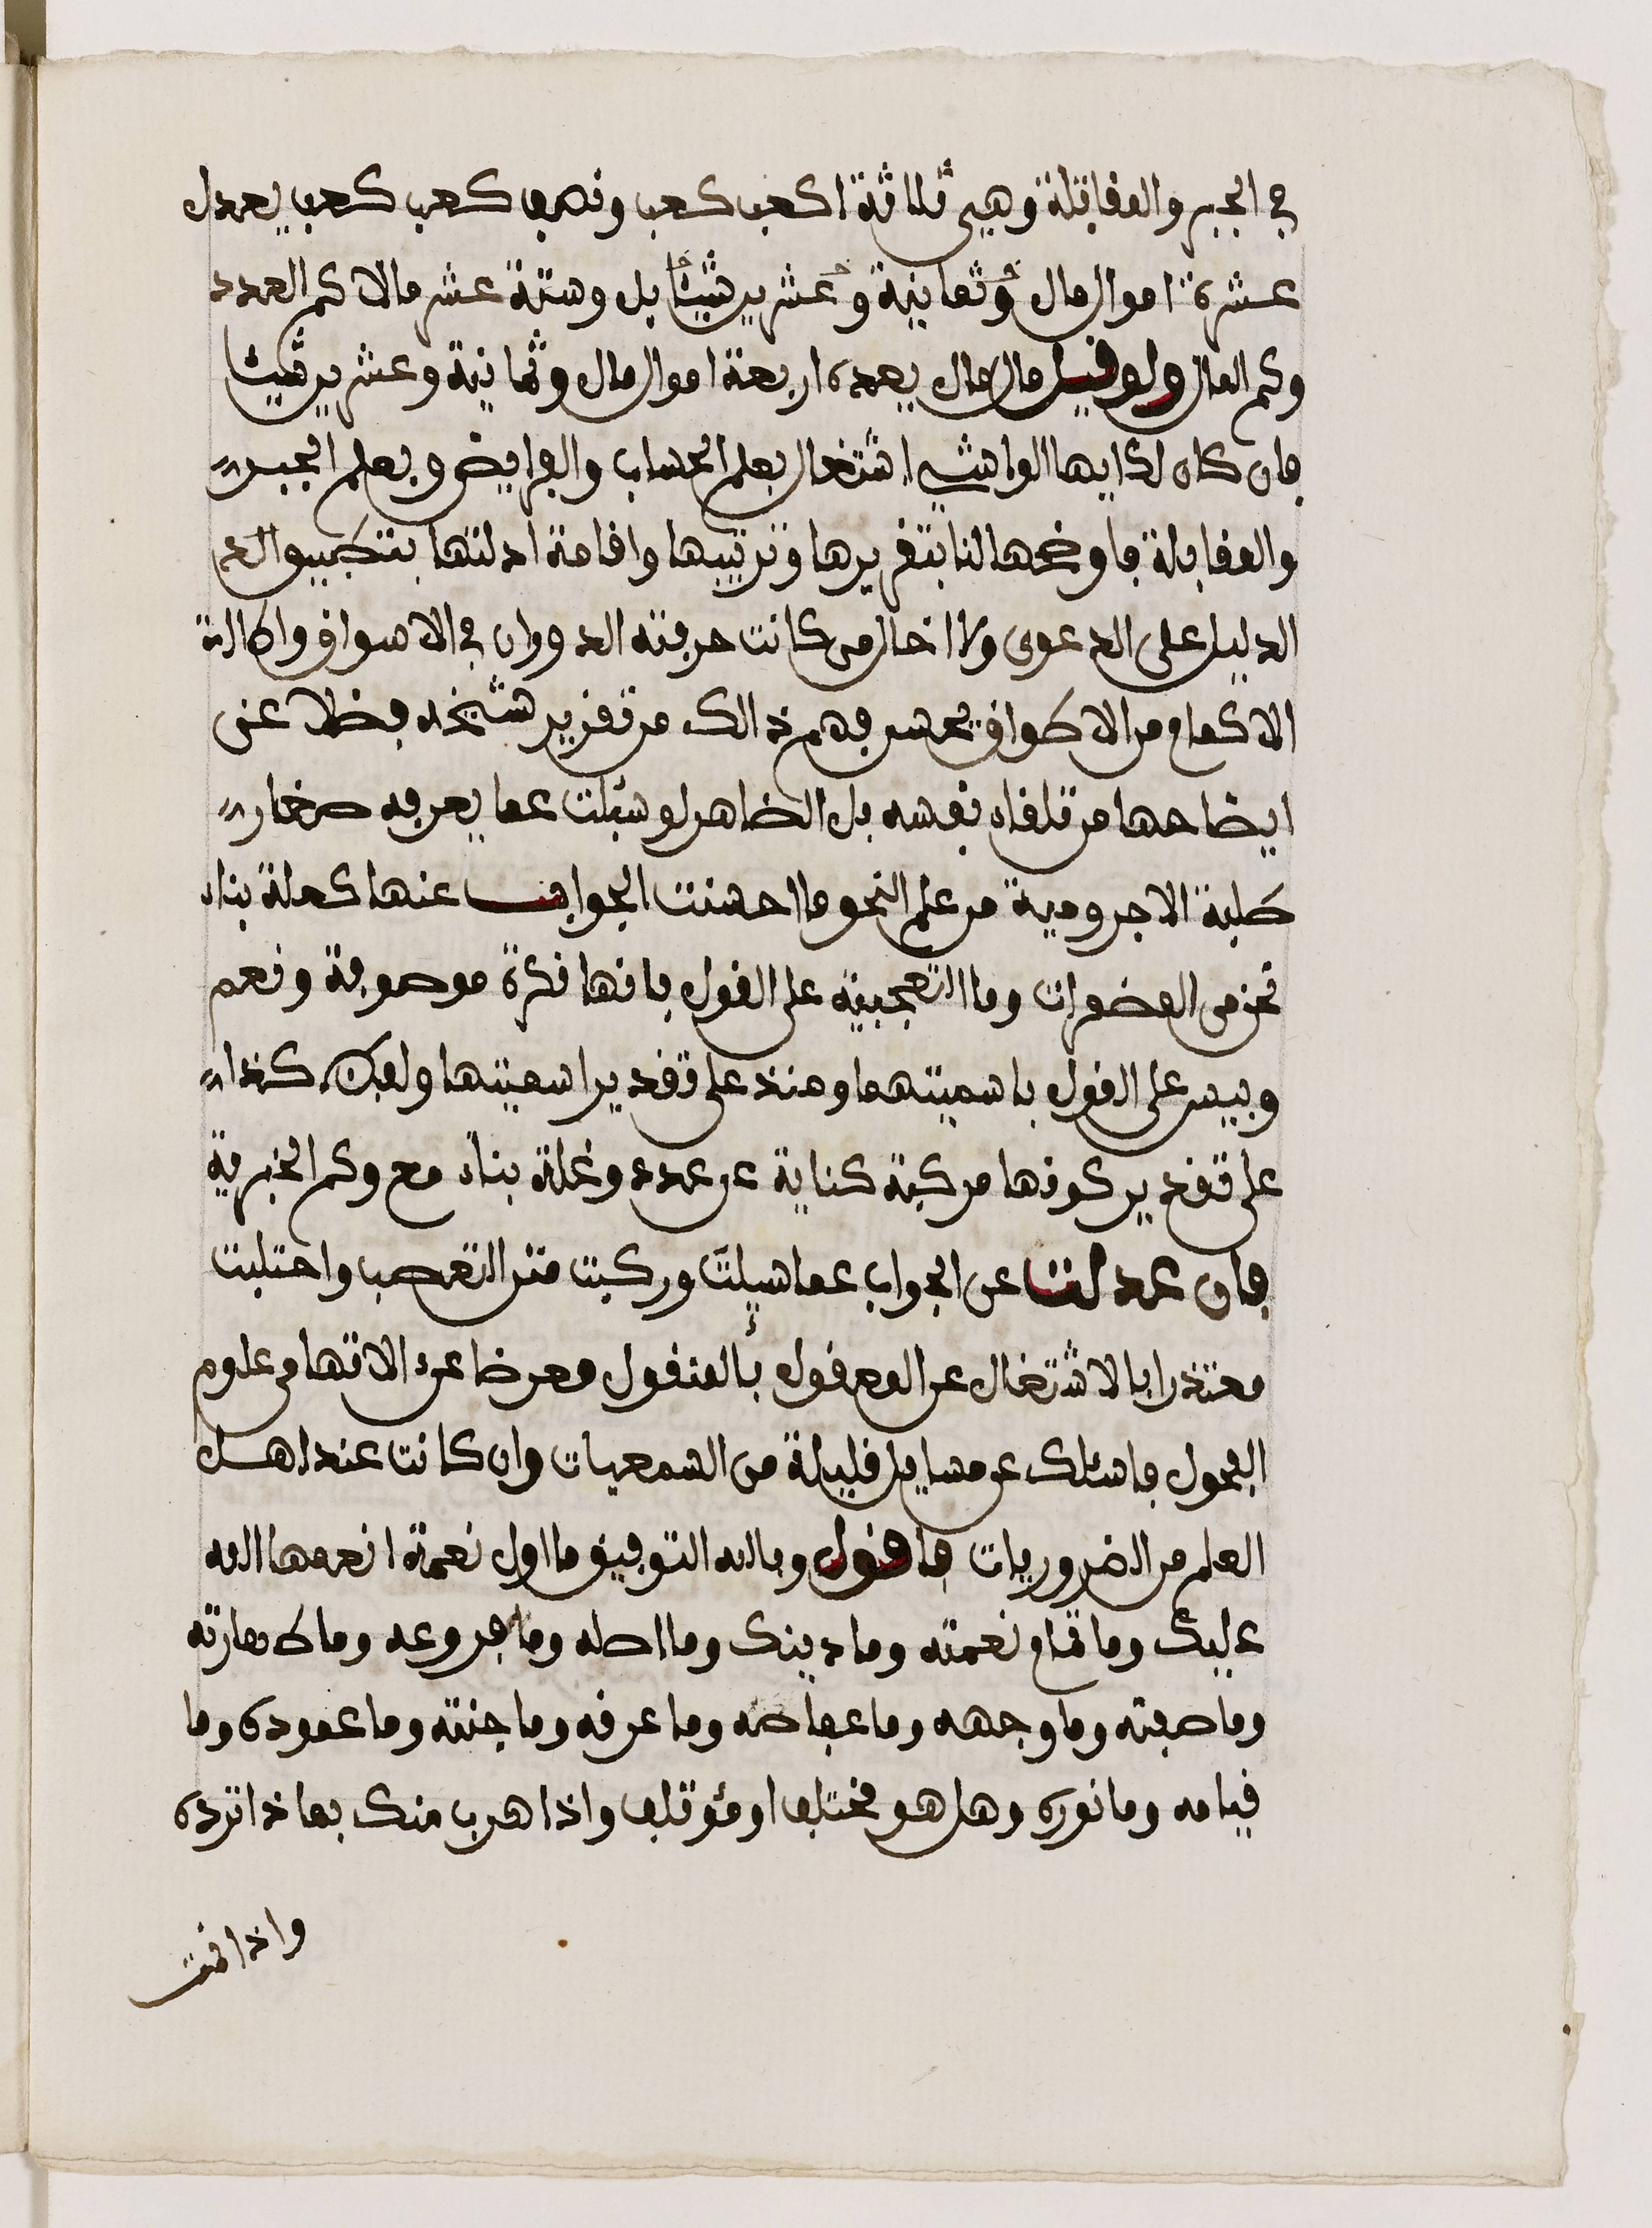 في الجبر والمقابلة وهي ثلاثة اكعب كعب ونصف كعب كعب يعدل
عشرة اموال مال وثمانية وعشرين شيئا بل وستة عشر مالا كم العدد
وكم المال ولو قيل مال مال يعدل اربعة اموال مال وثمانية وعشرين شيئا
فان كان لك ايها الواشي اشتغال بعلم الحساب والفرايض وبعلم الجبر
والمقابلة فاوضحها لنا بتقريرها وترتيبها واقامة ادلتها بتطبيق الد
الدليل على الدعوى ولا اخال من كانت حرفته الدوران في الاسواق واطالة
الاكمام من الاطواق يحسن فهم ذالك من تقرير شيخه فضلا عن
ايضاحها من تلقاء نفسه بل الظاهر لو سئلت عما يعرفه صغار
طلبة الاجرومية من علم النحو ما احسنت الجواب عنها كعلة بناء
نحن من المضمرات وما التعجبية على القول بانها نكرة موصوفة ونعم
وبيس على القول باسميتهما ومنذ على تقدير اسميتها ولفظ كذا
على تقدير كونها مركبة كناية عن عدد وعلة بناء مع وكم الخبرية
فان عدلت عن الجواب عما سيلت وركبت متن التعصب واحتلبت
معتذرا بالاشتغال عن المعقول بالمنقول معرضا عن الانتهاء في علوم
الفحول فاسئلك عن مسايل قليلة من السمعيات وان كانت عند اهل
العلم من الضروريات فاقول وبالله التوفيق ما اول نعمة انعمها الله
عليك وما تمام نعمته وما دينك وما اصله وما فروعه وما طهارته
وما صفته وما وجهه وما عفاصه وما عرقه وما جنته وما عموده وما
قيامه وما نوره وهل هو مختلف او مؤتلف واذا هرب منك بماذا ترده
واذا قمت